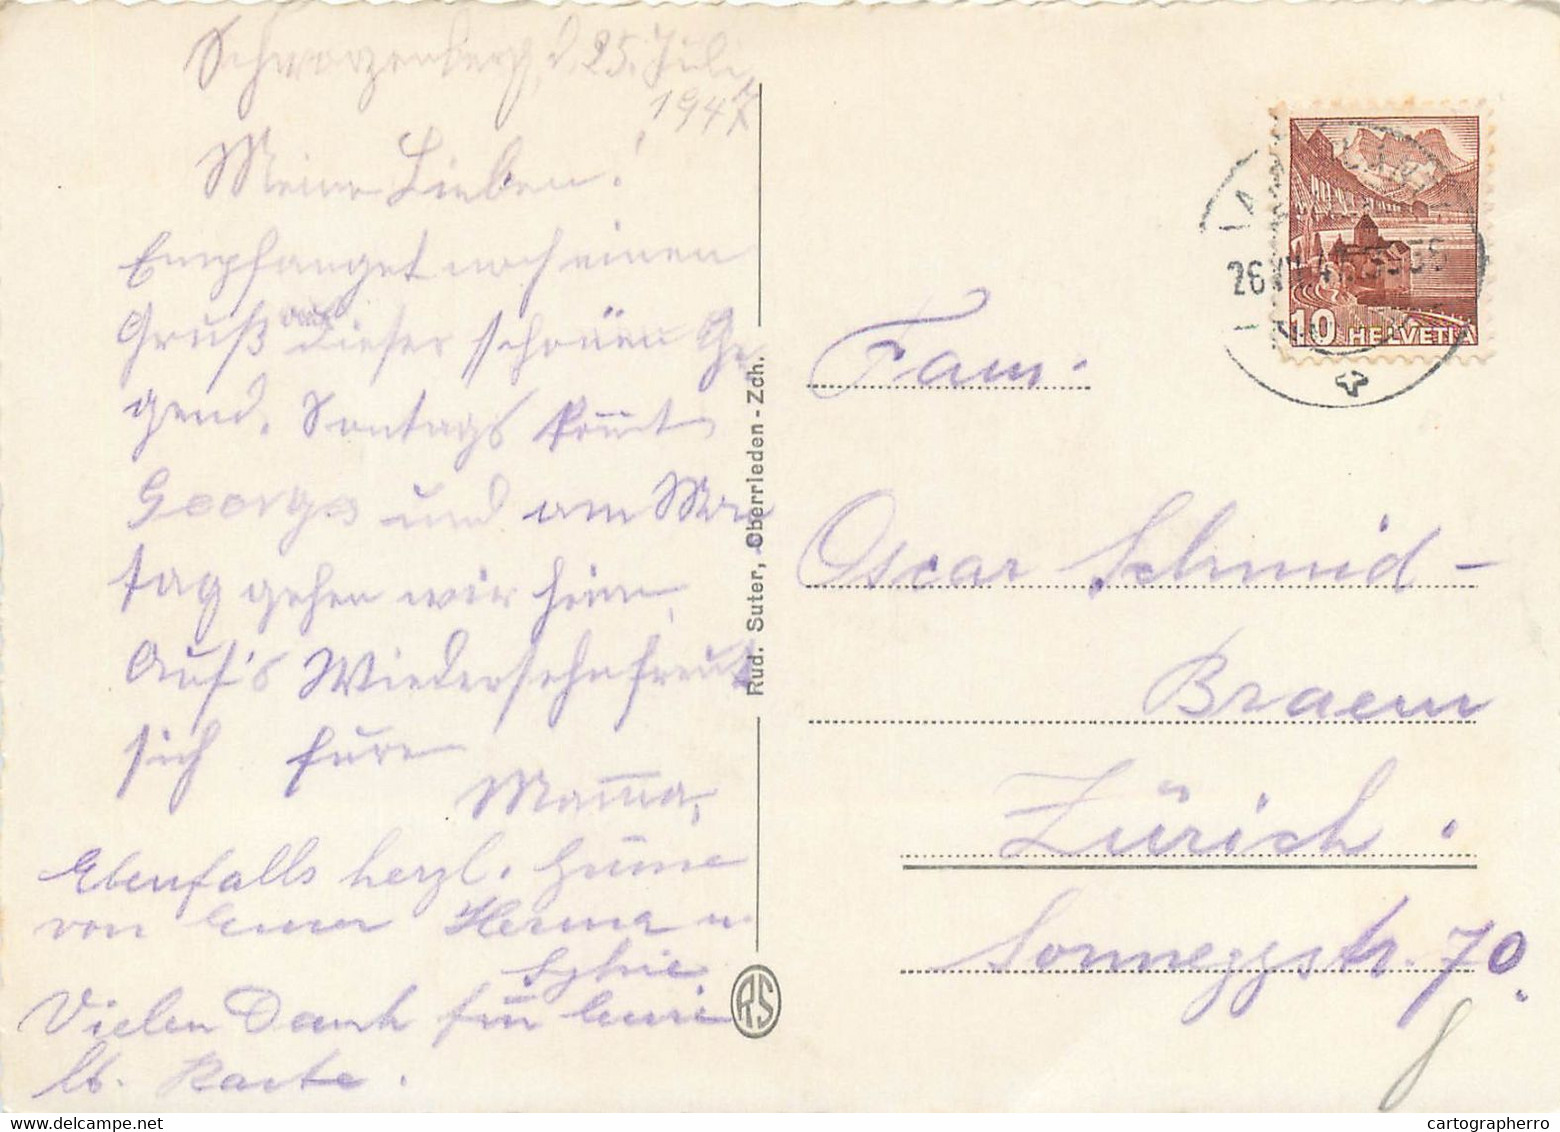 Schwarzenberg, d. 25. Juli
1947
Meine Lieben!
Empfanget noch einen
Gruß aus dieser schönen Ge-
gend. Sontags kom̅t
Georges und am Mon
tag gehen wir heim.
Auf's Wiedersehn freut
sich Eure
Mam̅a.
Ebenfalls herzl. Grüsse
von Eurer Herma u.
Sylvie
Vielen Dank für Eure
lb. Karte.
Rud. Suter, Oberrieden - Zch.
RS
10 HELVETIA
26 VII 47
Fam.
Oscar Schmid-
Braem
Zürich.
Sonneggstr. 70.
delcampe.net
cartographerro